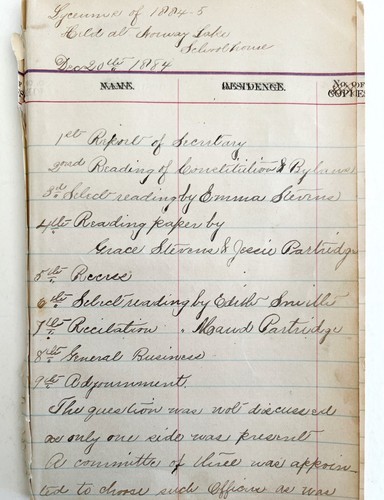 Lyceume of 1884-5
Held at Norway Lake
Schoolhouse
Dec 20th 1884
NAME. RESIDENCE. NO. OF COPIES
1st Report of Secretary
2nd Reading of Constitution & Bylaws
3d Select reading by Emma Stevens
4th Reading paper by
Grace Stevens & Jessie Partridge
5th Recess
6th Select reading by Edith Smith
7th Recitation " Maud Partridge
8th General Business
9th Adjournment.
The question was not discussed
as only one side was present
A committe of three was appoin-
ted to choose such Officers as was